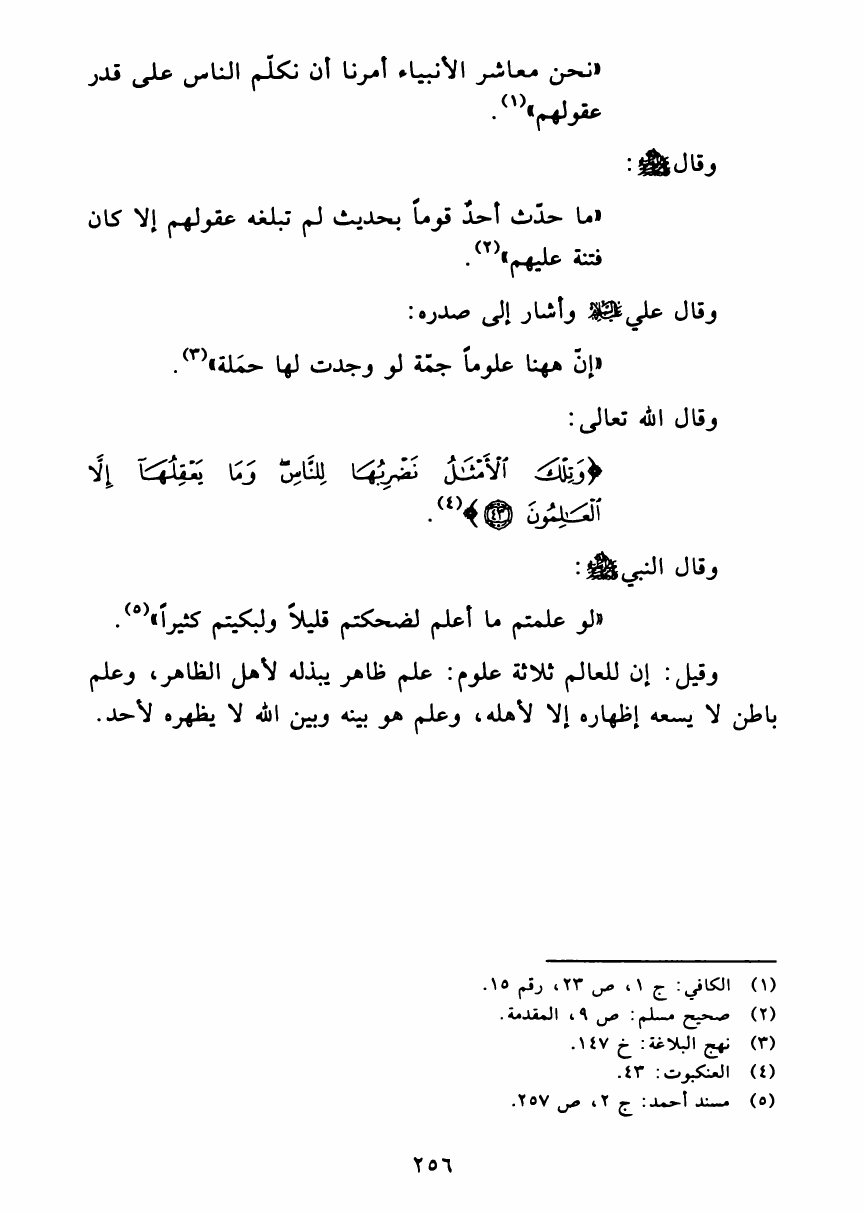 «نحن معاشر الأنبياء أمرنا أن نكلّم الناس على قدر
عقولهم»(١).
وقال ﷺ:
«ما حدّث أحدٌ قوماً بحديث لم تبلغه عقولهم إلا كان
فتنة عليهم»(٢).
وقال علي عليه السلام وأشار إلى صدره:
«إنّ ههنا علوماً جمّة لو وجدت لها حمَلة»(٣).
وقال الله تعالى:
﴿وَتِلْكَ ٱلْأَمْثَٰلُ نَضْرِبُهَا لِلنَّاسِۖ وَمَا يَعْقِلُهَآ إِلَّا
ٱلْعَٰلِمُونَ ٤٣﴾(٤).
وقال النبي ﷺ:
«لو علمتم ما أعلم لضحكتم قليلاً ولبكيتم كثيراً»(٥).
وقيل: إن للعالم ثلاثة علوم: علم ظاهر يبذله لأهل الظاهر، وعلم
باطن لا يسعه إظهاره إلا لأهله، وعلم هو بينه وبين الله لا يظهره لأحد.
(١) الكافي: ج ١، ص ٢٣، رقم ١٥.
(٢) صحيح مسلم: ص ٩، المقدمة.
(٣) نهج البلاغة: خ ١٤٧.
(٤) العنكبوت: ٤٣.
(٥) مسند أحمد: ج ٢، ص ٢٥٧.
٢٥٦